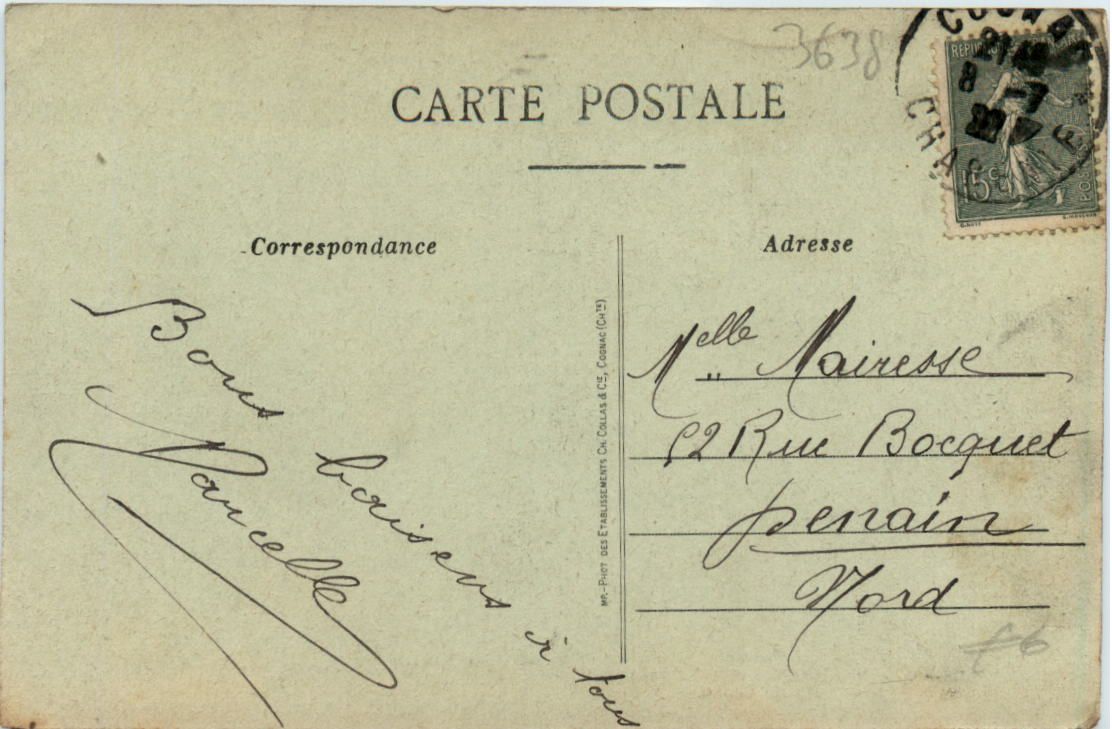 3638
CARTE POSTALE
COGNAC
21
8 -7
22
CHARENTE
RÉPUBLIQUE FRANÇAISE
15c
POSTES
Correspondance
Adresse
Bons baisers à tous
Marcelle
IMP.-PHOT DES ETABLISSEMENTS CH. COLLAS & CIE, COGNAC (CHTE)
Melle Mairesse
52 Rue Bocquet
Denain
Nord